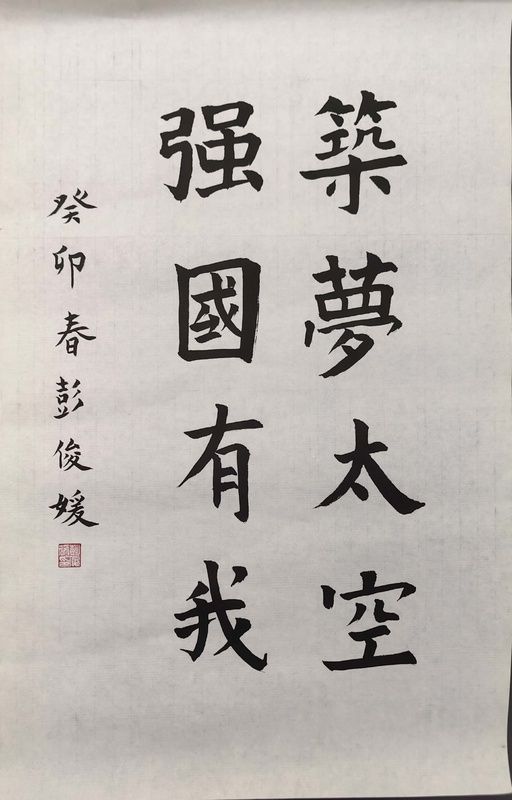 築夢太空
强國有我
癸卯春彭俊媛